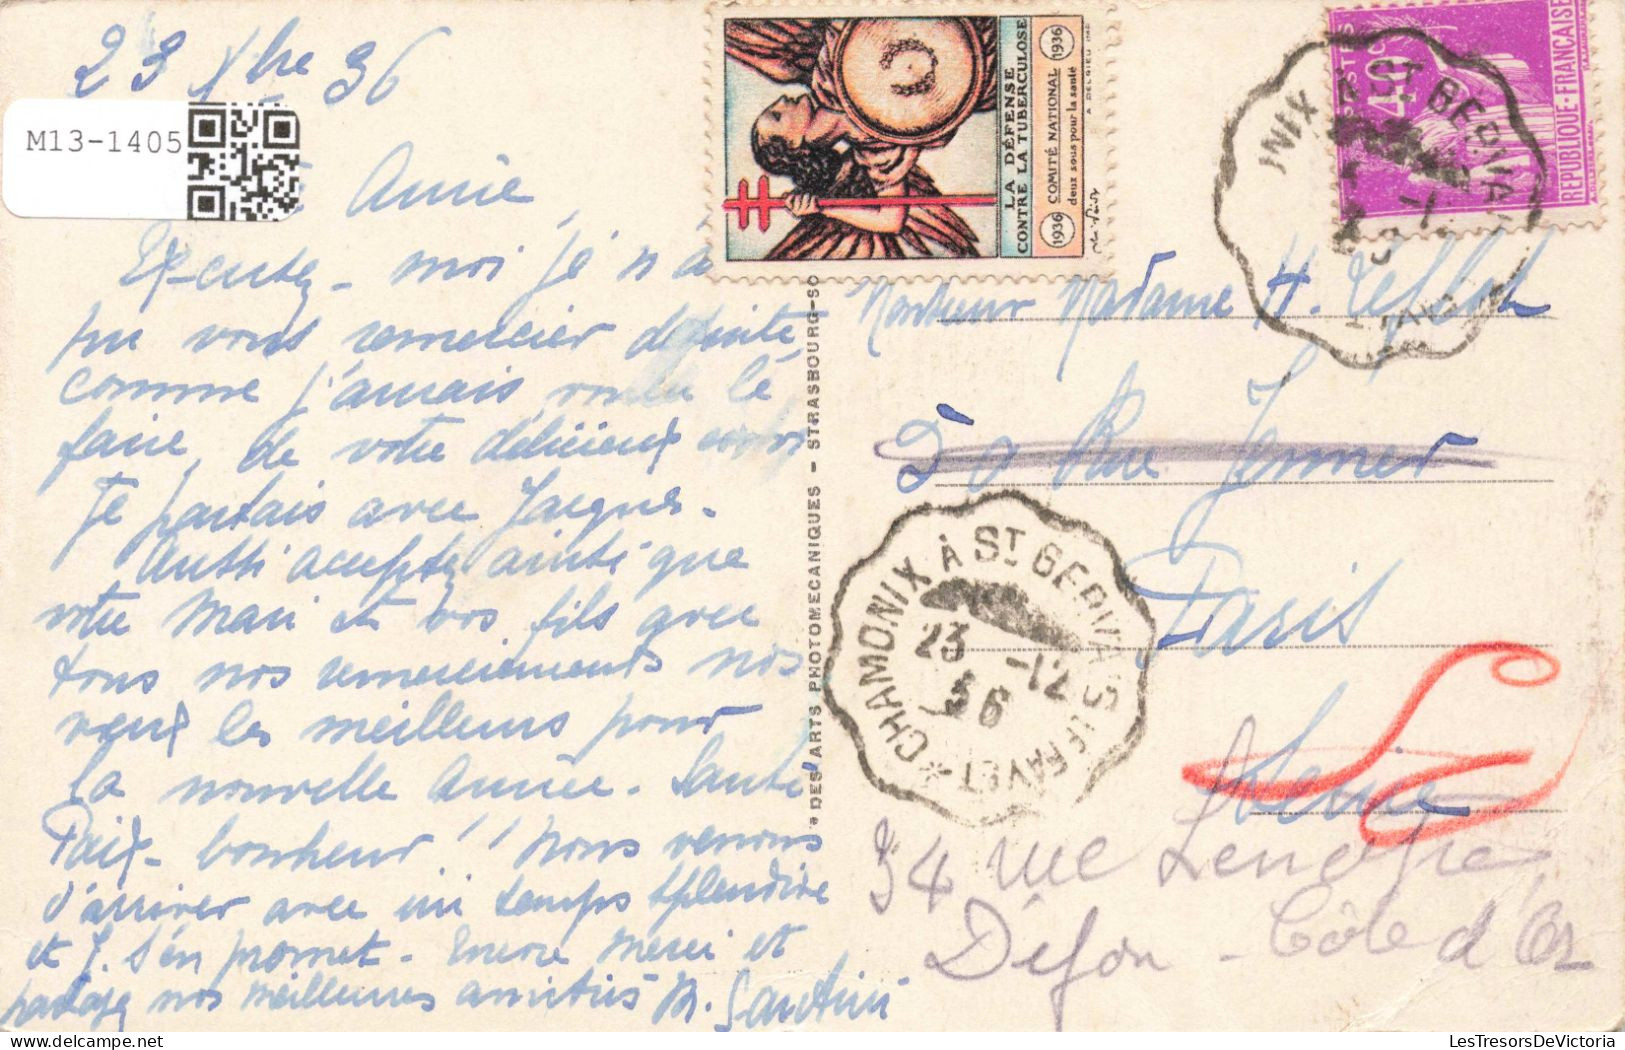 23 Xbre 36
M13-1405
Amie,
Excutez-moi je n'ai
pu vous remercier de suite
comme j'aurais voulu le
faire, de votre délicieux
Je partais avec Jacques.
Aussi acceptez ainsi que
votre Mari et vos fils avec
tous nos remerciements nos
vœux les meilleurs pour
la nouvelle Année. Santé
Paix - bonheur!! Nous venons
d'arriver avec un temps splendide
et J. s'en promet. Encore merci et
partagez nos meilleures amitiés M.
LA DÉFENSE
CONTRE LA TUBERCULOSE
1936 COMITÉ NATIONAL 1936
deux sous pour la santé
POSTES
40c
REPUBLIQUE-FRANÇAISE
ST GERVAIS
DES ARTS PHOTOMECANIQUES - STRASBOURG-
Monsieur Madame H.
Rue Jenner
Paris
CHAMONIX À ST GERVAIS LE FAYET
23 -12
36
34 rue
Dijon - Côte d'Or
LesTresorsDeVictoria.com